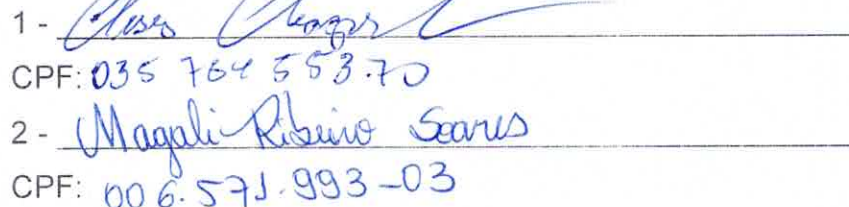 1 -
CPF: 035 764 553.70
2 - Magali Ribeiro Soares
CPF: 006.571.993-03